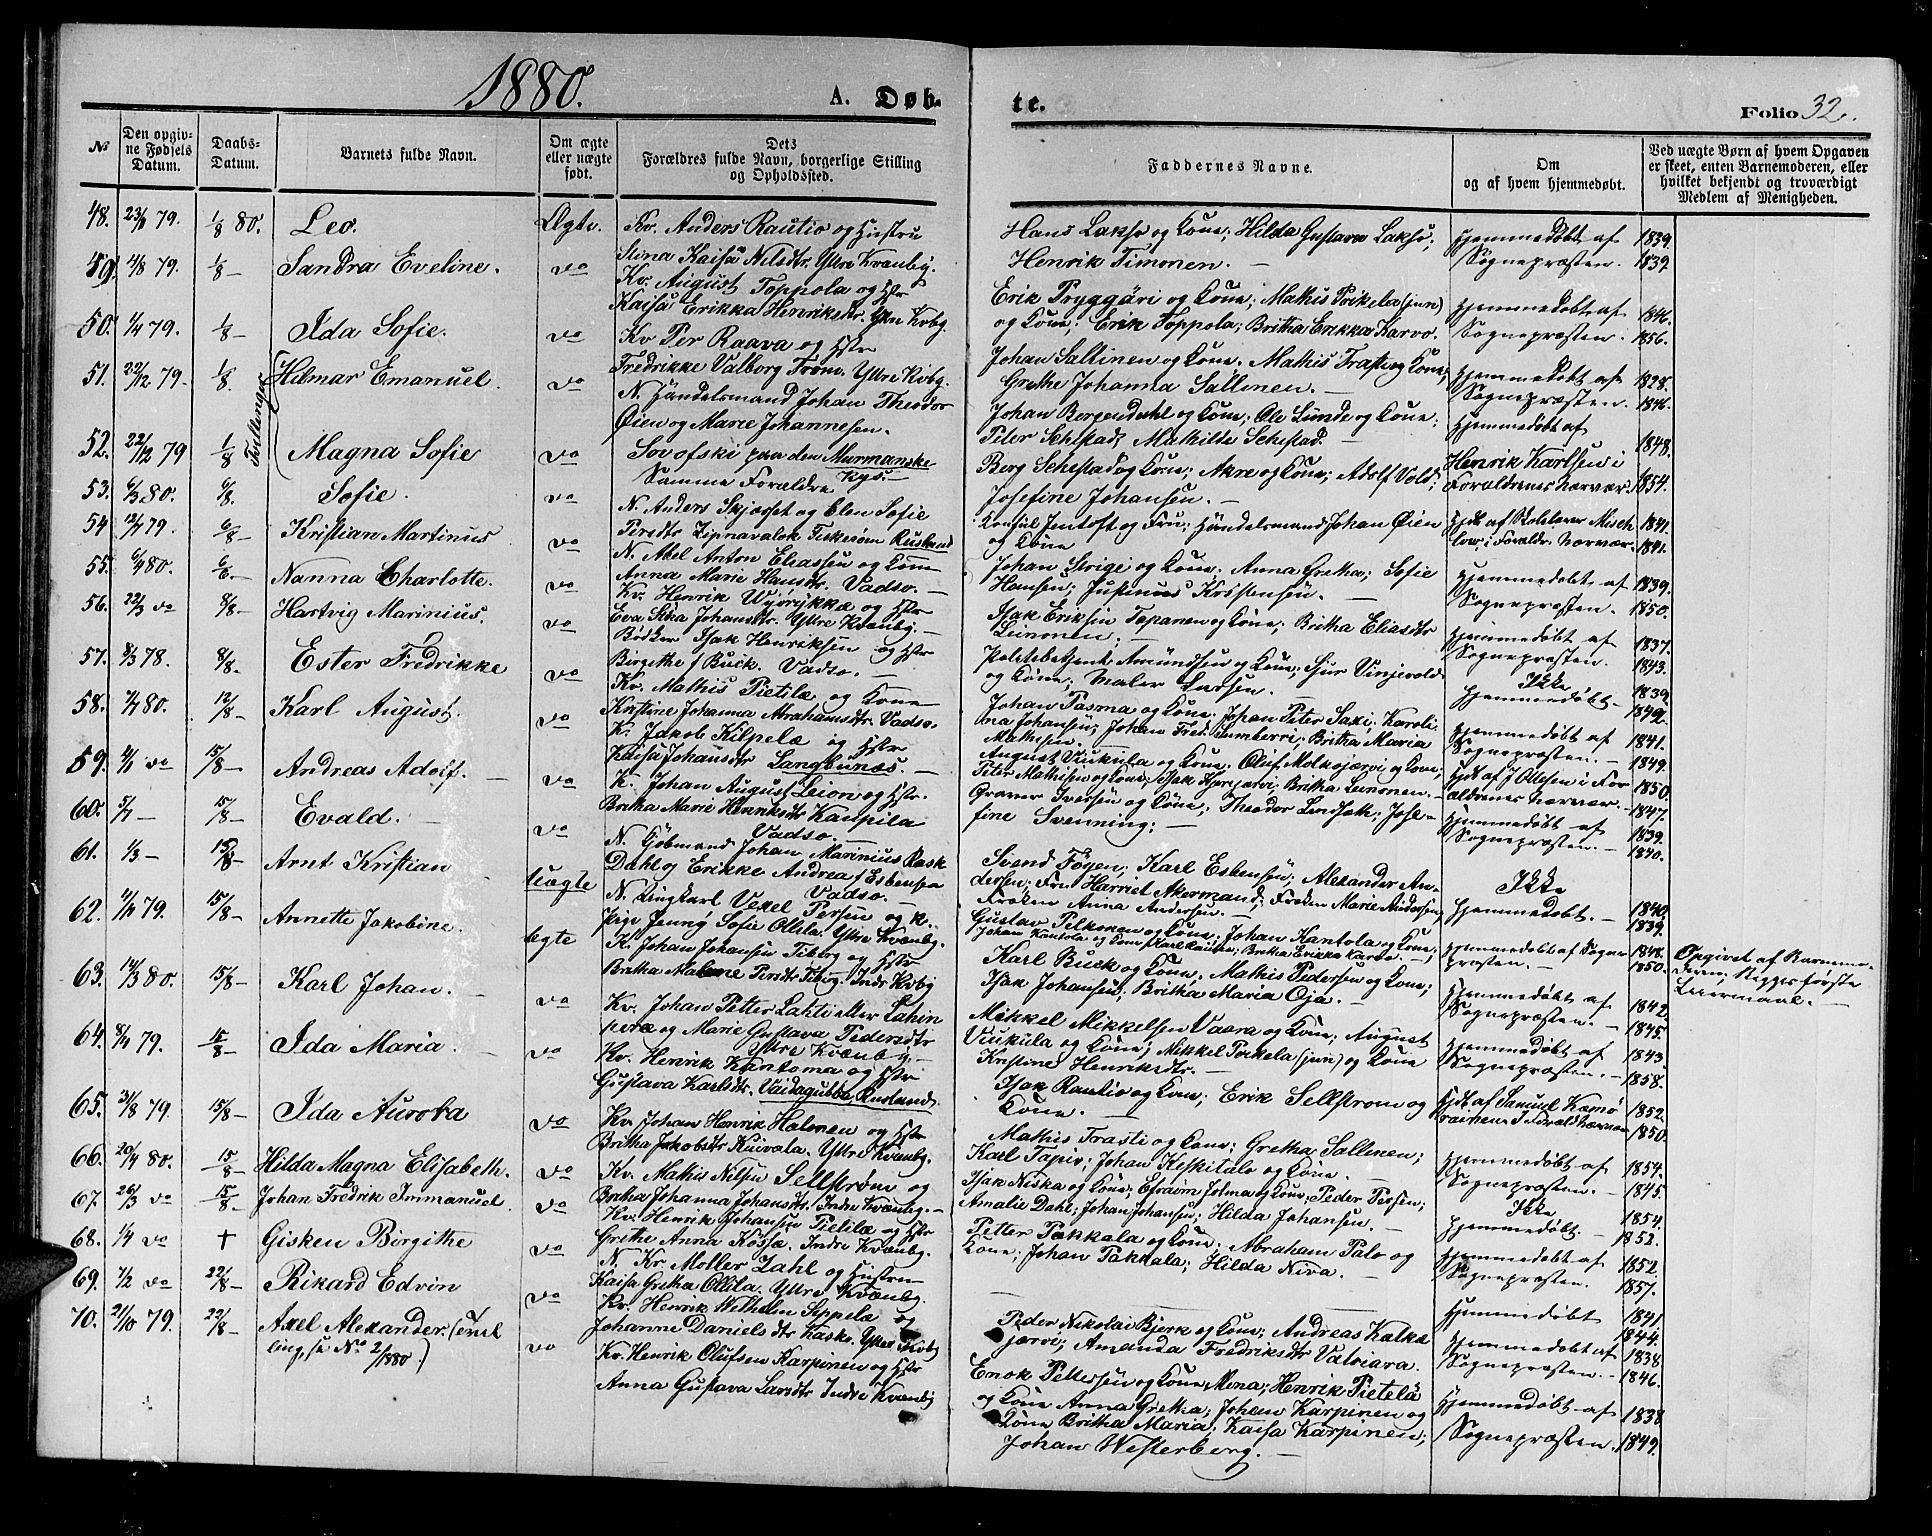 1880.
A. Døb-
te.
Folio 32.
No
Den opgiv-
ne Fødsels
Datum.
Daabs-
Datum.
Barnets fulde Navn.
Om ægte
eller uægte
født.
Dets
Forældres fulde Navn, borgerlige Stilling
og Opholdssted.
Faddernes Navne.
Om
og af hvem hjemmedøbt.
Ved uægte Børn af hvem Opgaven
er skeet, enten Barnemoderen, eller
hvilket bekjendt og troværdigt
Medlem af Menigheden.
48. 23/8 79. 1/8 80. Leo. Ægte.
49. 4/8 79. 1/8 — Sandra Eveline. do
50. 1/4 79. 1/8 — Ida Sofie. do
51. 22/12 79. 1/8 Hilmar Emanuel. do
Tvillinger
52. 22/12 79 1/8 Magna Sofie do
53. 6/3 80. 6/8. Sofie. do
54 12/7 79. 6/8 — Kristian Martinus do
55. 6/4 80. 6/8 — Nanna Charlotte. do
56. 22/3 do 8/8 — Hartvig Marinius. do
57. 8/3 78. 8/8 — Ester Fredrikke do
58. 7/4 80. 12/8 — Karl August. do
59. 4/1 do 15/8 — Andreas Adolf. — do
60. 5/7 — 15/8 — Evald. — do
61. 1/3 — 15/8 — Arnt Kristian uægte
62. 79. 15/8 — Annette Jakobine. ægte
63. 14/3 80. 15/8 — Karl Johan. — do
64. 8/4 79. 15/8 — Ida Maria. — do
65. 31/8 79. 15/8 — Ida Aurora do
66. 20/4 80. 15/8 — Hilda Magna Elisabeth. do
67. 26/3 do 15/8 — Johan Fredrik Immanuel. do
68. 1/4 do † Gisken Birgithe do
69. 7/2 do 22/8 — Rikard Edvin do
70. 21/10 79. 22/8 — Axel Alexander. (tvil
ling, se No 2/1880.) do
Kv. Anders Rautio og Hustru
Stina Kaisa Nilsdtr. Ytre Kvænby.
Kv. August Toppola og Hstr
Kaisa Erikka Henriksdtr. Ytre Kvbg.
Kv Per Raava og Hstr
Fredrikke Valborg Trøm. Ytre Kvbg.
N. Handelsmand Johan Theodor
Øien og Marie Johannesen.
paa den Murmanske
Samme Forældre Kys. —
N. Anders Skjærset og Elen Sofie
Persdtr Zipnavalok Fiskerøm Rusland
N. Axel Anton Eliassen og Kone
Anna Marie Hansdtr. Vadsø. —
Kv. Henrik og Hstr
Eva Stina Johansdtr. Ytre Kvænby. —
Bødker Isak Henriksen og Hstr
Birgithe f Buck. Vadsø. —
Kv. Mathis Pietilæ og Kone
Kristine Johanna Abrahamsdtr. Vadsø.
K. Jakob Kilpelæ og Hstr
Kaisa Johansdtr Langbunæs. —
K. Johan August Leion og Hstr.
Britha Marie Henriksdtr Kaupila
Vadsø. —
N. Gjøbmand Johan Marinius Rask
Dahl og Erikke Andrea f Esbensen
Vadsø. —
N. Ungkarl Vexel Persen og K.
Pige Jenny Sofie Ollila. Ytre Kvænbg.
K. Johan Johansen Tiberg og Hstr
Britha Malene Persdtr Tibrg. Indr Kvbg
Kv. Johan Petter Lahti eller Lahin
peræ og Marie Gustava Pedersdtr
Ytre Kvænby. —
Kv. Henrik Kantoma og Hstr
Gustava Karlsdtr. Vaidagubba, Rusland.
Kv. Johan Henrik Halonen og Hstr
Britha Jakobsdtr Kuivala. Ytre Kvænbg.
Kv. Mathis Nilsen Sellstrøm og
Britha Johanna Johansdtr. Indre Kvænbg. —
Kv. Henrik Johansen Pietilæ og Hstr
Grethe Anna Kössæ. Indre Kvænbg.
N. Kr Møller Dahl og Hustru
Kaisa Gretha Ollila. Ytre Kvænbg.
Kv. Henrik Wilhelm Seppelæ og
Johanne Danielsdtr Kaske. Ytre Kvbg
Kv. Henrik Olufsen Karpinen og Hstr
Anna Gustava Larsdtr Indre Kvænbg
Hans Lakso og Kone; Hilda Gustava Lakso;
Henrik Timonen. —
Erik Pryggäri og Kone; Mathis Poikela (jun)
og Kone; Erik Toppola; Britha Erikka Karvo.
Johan Sallinen og Kone; Mathis Trasti og Kone;
Grethe Johanna Sallinen. —
Johan Bergendahl og Kone; Ole Lunde og Kone;
Peter Sehstad; Mathilde Sehestad.
Berg Sehestad og Kone; Akre og Kone; Adolf Vold;
Josefine Johansen. —
Konsul Jentoft og Fru; Handelsmand Johan Øien
og Kone
Johan Strige og Kone; Anna Gretha; Sofie
Hansen; Justinus Kristensen. —
Isak Eriksen Tapanen og Kone; Britha Eliasdtr
Leinonen. —
Politibetjent Amundsen og Kone; Sjur Vinjevold
og Kone; Maler Larsen. —
Johan Pasma og Kone; Johan Peter Saxi; Karoli
na Johansen; Johan Fred. Tumberri; Britha Maria
Mathisen. —
August Vuukula og Kone; Oluf Molkojærvi og Kone;
Peter Mathisen og Kone; Isak Hjerjærvi; Britha Leinonen. —
Graver Iversen og Kone; Theodor Lindseth; Jose-
fine Svenning; —
Svend Føyen; Karl Esbensen; Alexander An-
dersen; Fru Harriet Akermand; Frøken Marie Andersen;
Frøken Anna Andersen. —
Gustav Pelkonen og Kone; Johan Kantola og Kone;
Karl Buck og Kone; Mathis Pedersen og Kone;
Isak Johansen; Britha Maria Oja. —
Mikkel Mikkelsen Vaara og Kone; August
Vuukula og Kone; Mikkel Poikela (jun) og Kone
Kristine Henriksdtr. —
Isak Rautio og Kone; Erik Sellstrøm og
Kone. —
Mathis Trasti og Kone; Gretha Sallinen;
Karl Tapio; Johan Keskitalo og Kone. —
Isak Niska og Kone; Efraim Jolma og Kone; Peder Persen;
Amalie Dahl; Johan Johansen; Hilda Johansen. —
Petter Pakkala og Kone; Abraham Palo og
Kone; Johan Pakkala; Hilda Niva. —
Peder Nikolai Bjerk og Kone; Andreas Kalka
jærvi; Amanda Fredriksdtr Valviara.
Enok Pettersen og Kone Mena; Henrik Pietelä
og Kone Anna Gretha; Johan Karpinen og
Kone Britha Maria; Kaisa Karpinen;
Johan Westerberg. —
Hjemmedøbt af 1839.
Sognepræsten. — 1839.
Hjemmedøbt af 1846.
Sognepræsten. 1856.
Hjemmedøbt af 1828.
Sognepræsten. 1846.
Hjemmedøbt af 1848.
Henrik Karlsen i
Forældrenes Nærvær. 1854.
Hjdt af Skolelærer Misch 1841.
low, i Forældr. Nærvær. 1841.
Hjemmedøbt af 1839.
Sognepræsten. 1850.
Hjemmedøbt af 1837.
Sognepræsten. 1843.
Ikke 1839
Hjemmedøbt. — 1849.
Hjemmedøbt af 1841.
Sognepræsten. — 1849.
Hjdt af J Ottesen i For 1850.
ældrenes Nærvær. — 1847.
Hjemmedøbt af 1839.
Sognepræsten. — 1840.
Ikke 1840.
Hjemmedøbt. — 1839.
Hjemmedøbt af Sogne 1848.
præsten. — 1850.
Hjemmedøbt af 1842.
Sognepræsten. — 1845.
Hjemmedøbt af 1843
Sognepræsten. — 1858.
Hjdt af Samuel Kæmö 1852.
rainen i Foræld Nærvær 1850.
Hjemmedøbt af 1854.
Sognepræsten. — 1845.
Ikke 1854.
Hjemmedøbt. — 1852.
Hjemmedøbt af 1852.
Sognepræsten. 1857.
Hjemmedøbt 1841
1844.
Hjemmedøbt af 1838.
Sognepræsten. — 1846.
Hjemmedøbt af 1838.
Sognepræsten. 1849.
Opgivet af Barnemo-
deren; Begges første
Leiermaal. —